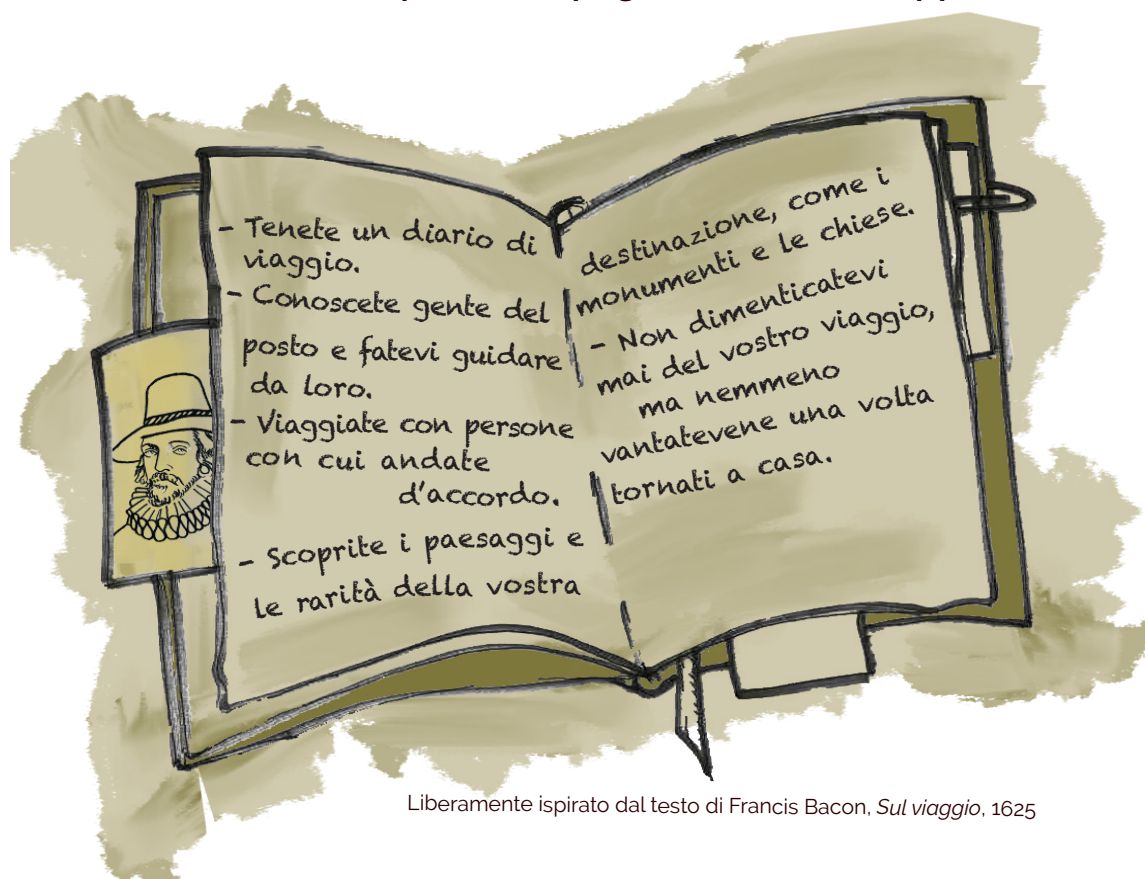 - Tenete un diario di
viaggio.
- Conoscete gente del
posto e fatevi guidare
da loro.
- Viaggiate con persone
con cui andate
d'accordo.
- Scoprite i paesaggi e
le rarità della vostra
destinazione, come i
monumenti e le chiese.
- Non dimenticatevi
mai del vostro viaggio,
ma nemmeno
vantatevene una volta
tornati a casa.
Liberamente ispirato dal testo di Francis Bacon, Sul viaggio, 1625